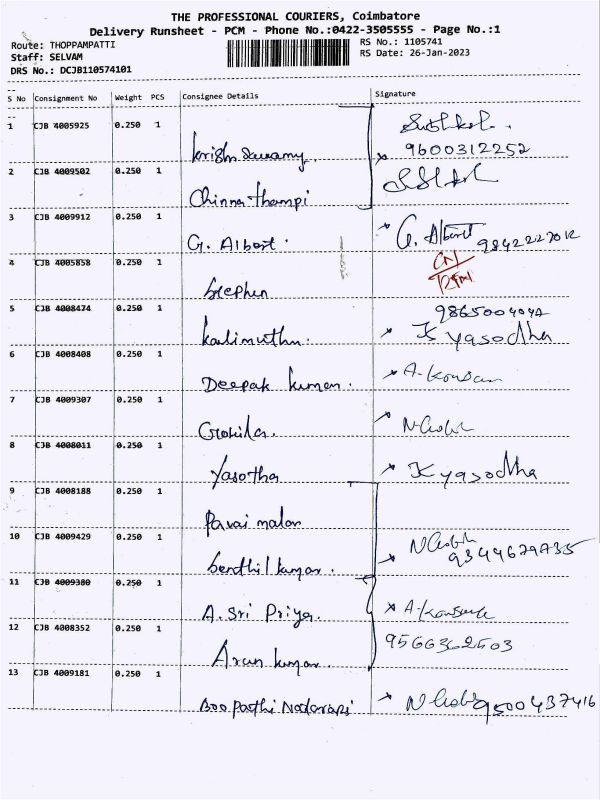 THE PROFESSIONAL COURIERS, Coimbatore
Delivery Runsheet - PCM - Phone No.:0422-3505555 - Page No.:1
Route: THOPPAMPATTI
Staff: SELVAM
DRS No.: DCJB110574101
RS No.: 1105741
RS Date: 26-Jan-2023
S No Consignment No Weight PCS Consignee Details Signature
1 CJB 4005925 0.250 1 Krishnaswamy
9600312252
2 CJB 4009502 0.250 1 Chinna thampi
3 CJB 4009912 0.250 1 G. Albert G. Albert 9842227012
4 CJB 4005858 0.250 1 Stephen
5 CJB 4008474 0.250 1 Kalimuthu. K yasodha
6 CJB 4008408 0.250 1 Deepak kumar.
7 CJB 4009307 0.250 1
8 CJB 4008011 0.250 1 Yasotha K yasodha
9 CJB 4008188 0.250 1 Pavai malar
10 CJB 4009429 0.250 1 Senthil kumar.
11 CJB 4009380 0.250 1 A. Sri Priya.
12 CJB 4008352 0.250 1 Arun kumar.
13 CJB 4009181 0.250 1 9500437416